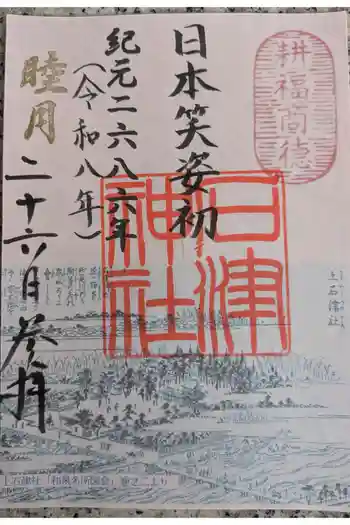 耕福尚徳
日本笑姿初
紀元二六八六年
(令和八年)
睦月
二十六日参拝
石津神社
上石津社
上石津社「和泉名所図会」巻之二より